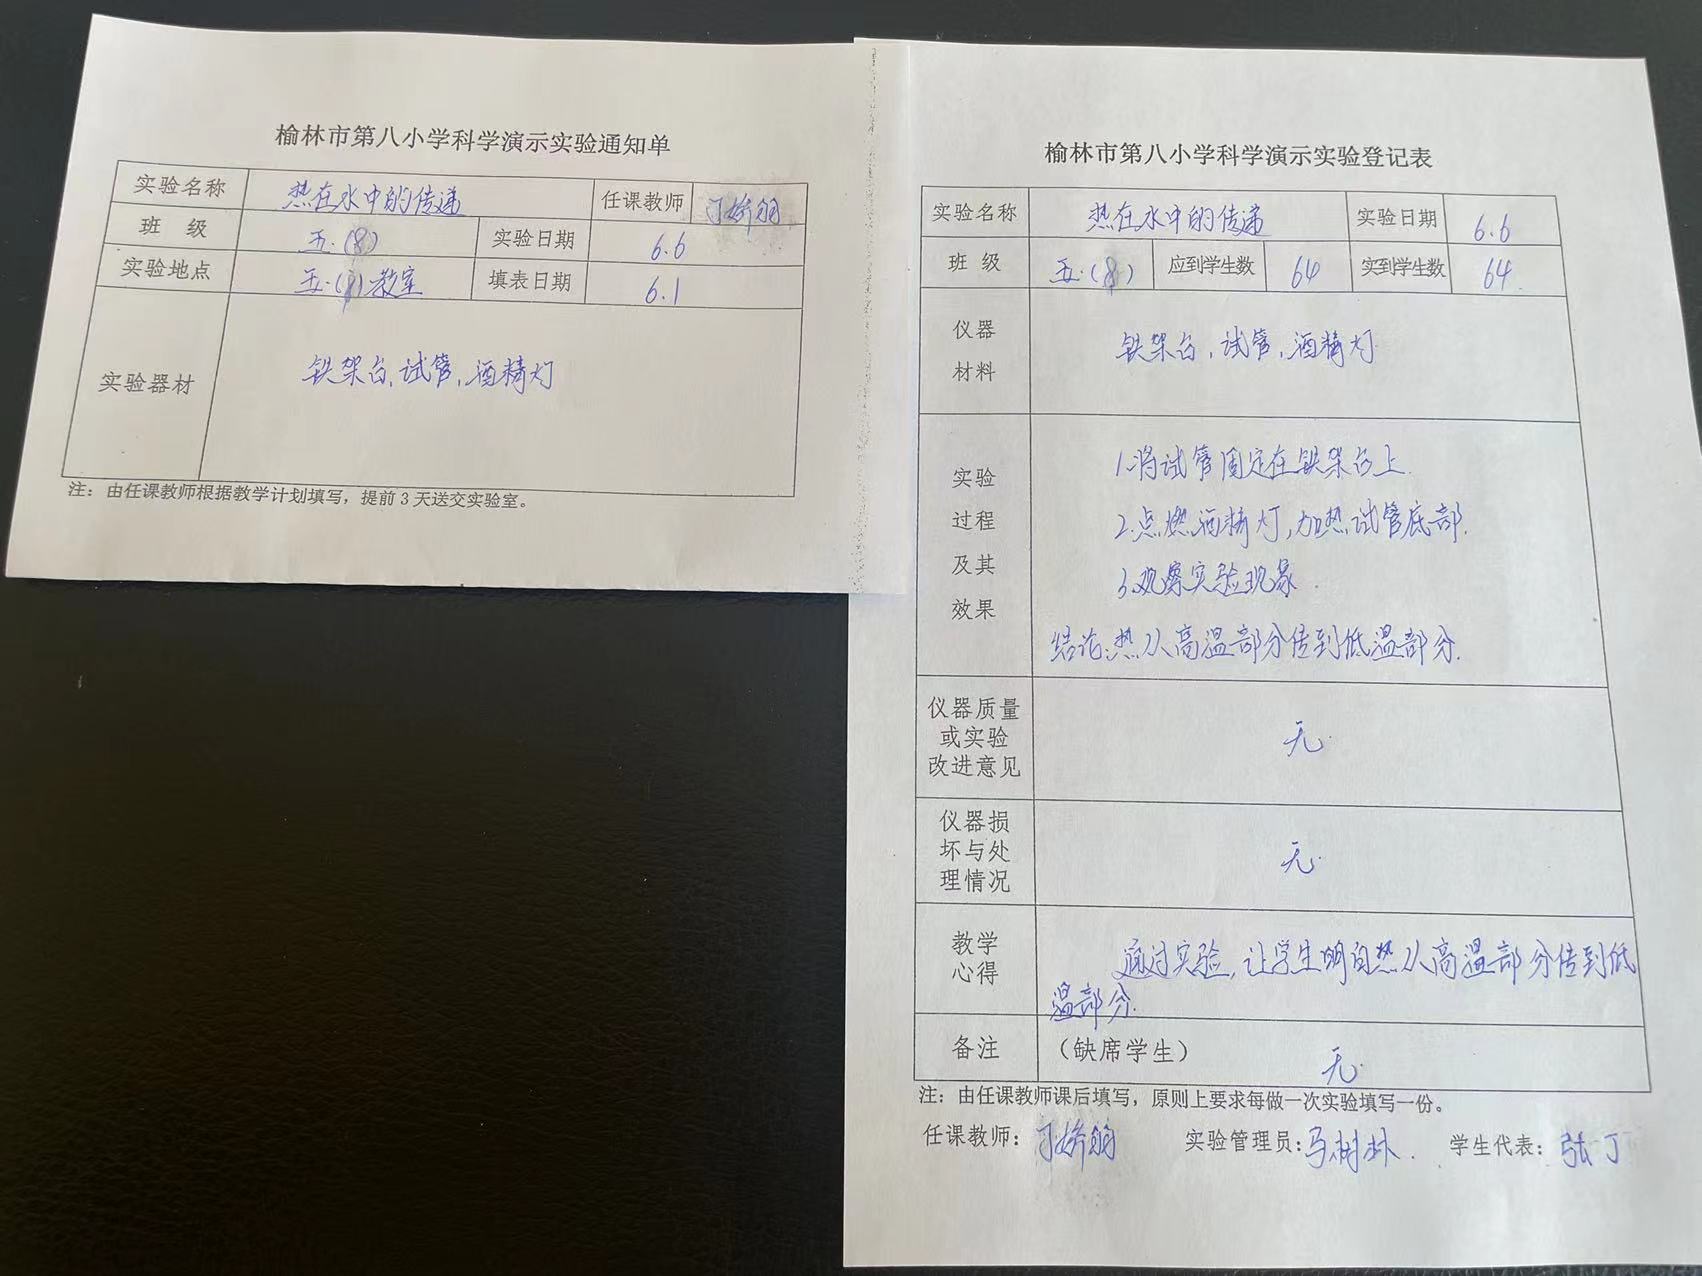 榆林市第八小学科学演示实验通知单
实验名称 热在水中的传递 任课教师
班 级 五.(8) 实验日期 6.6
实验地点 五.(8)教室 填表日期 6.1
实验器材 铁架台,试管,酒精灯
注：由任课教师根据教学计划填写，提前3天送交实验室。
榆林市第八小学科学演示实验登记表
实验名称 热在水中的传递 实验日期 6.6
班 级 五.(8) 应到学生数 64 实到学生数 64.
仪器
材料
铁架台,试管,酒精灯
实验
过程
及其
效果
1.将试管固定在铁架台上.
2.点燃酒精灯,加热试管底部.
3.观察实验现象.
结论:热从高温部分传到低温部分.
仪器质量
或实验
改进意见
无.
仪器损
坏与处
理情况
无.
教学
心得
通过实验,让学生明白热从高温部分传到低
温部分.
备注 （缺席学生） 无.
注：由任课教师课后填写，原则上要求每做一次实验填写一份。
任课教师： 实验管理员: 马树林. 学生代表： 张丁